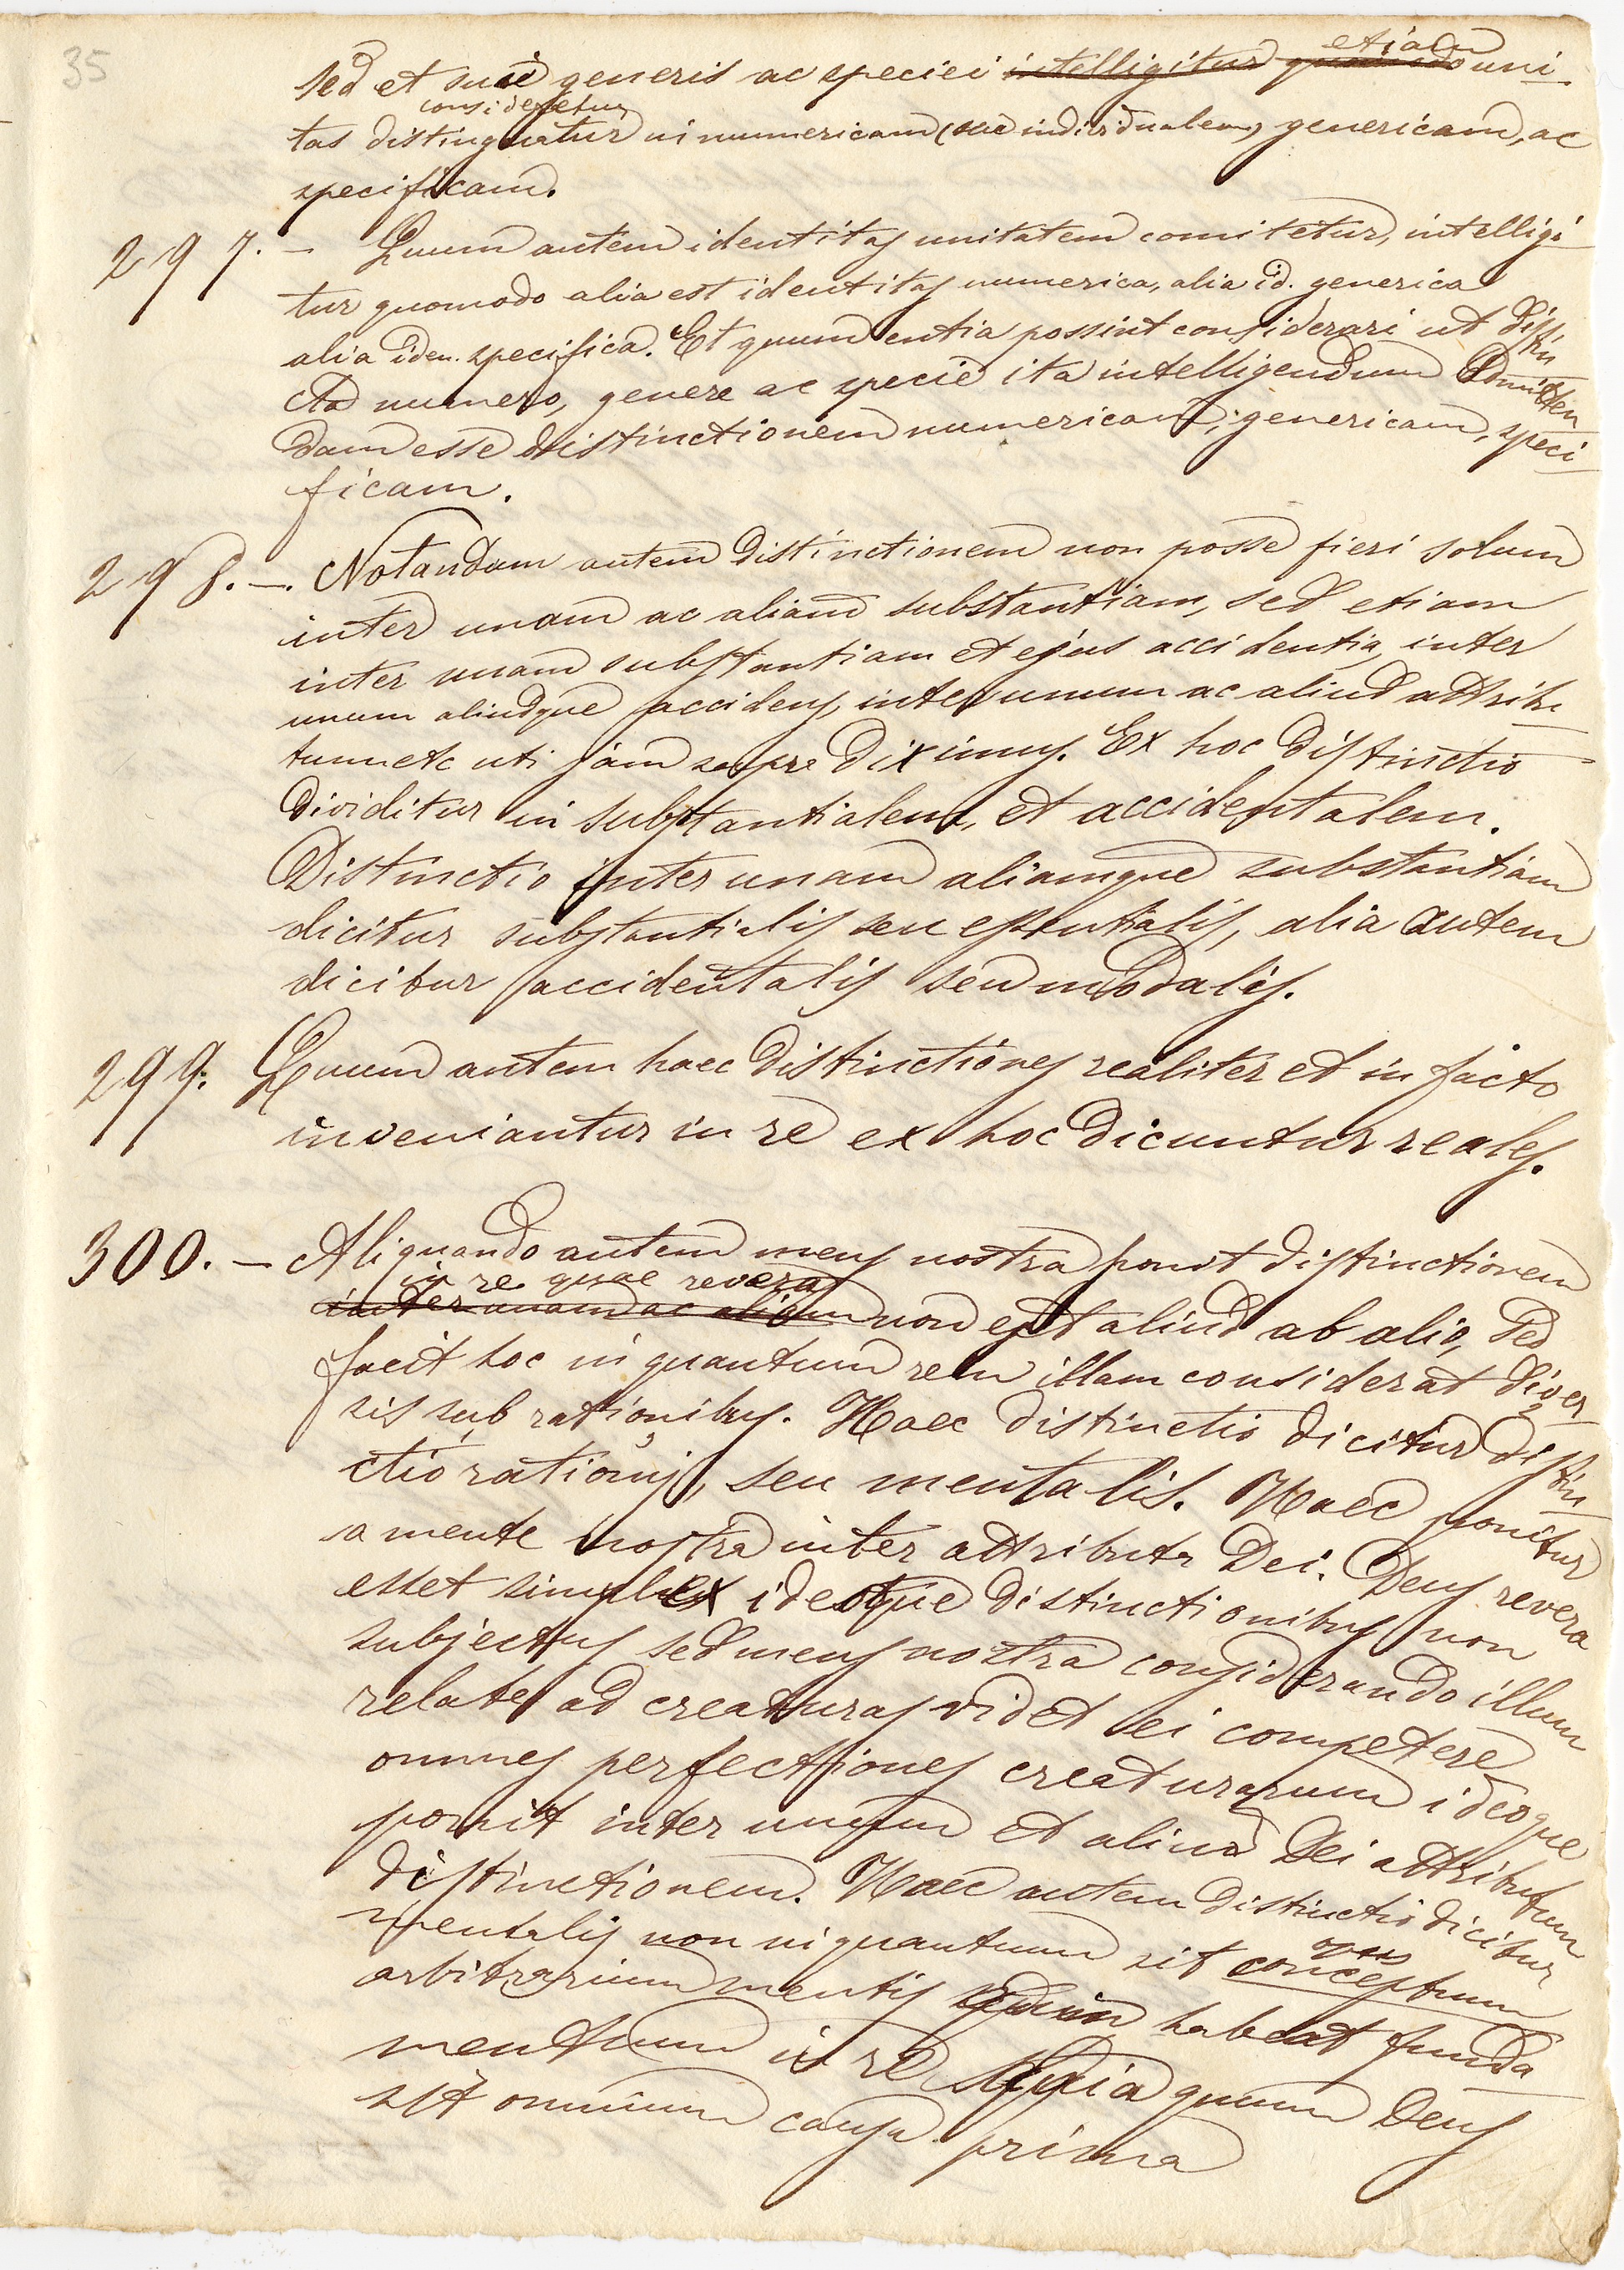 35
sed et sui generis ac speciei intelligitur quomodo etiam uni-
tas distinguatur consideretur in numericam (seu individualem) genericam, ac
specificam.
297. – Quum autem identitas unitatem comitetur, intelligi-
tur quomodo alia est identitas numerica, alia id. generica
alia iden. specifica. Et quum entia possint considerari ut distin-
cta numero, genere ac specie ita intelligendum admitten-
dam esse distinctionem numericam, genericam, speci-
ficam.
298. –. Notandum autem distinctionem non posse fieri solum
inter unam ac aliam substantiam, sed etiam
inter unam substantiam et ejus accidentia, inter
unum aliudque accidens, inter unum ac aliud attribu-
tum etc uti jam saepe diximus. Ex hoc distinctio
dividitur in substantialem, et accidentalem.
Distinctio inter unam aliamque substantiam
dicitur substantialis seu essentialis, alia autem
dicitur accidentalis seu modalis.
299. Quum autem haec distinctiones realiter et in facto
inveniantur in re ex hoc dicuntur reales.
300. – Aliquando autem mens nostra ponit distinctionem
in re quae revera
inter unam ac aliam non est aliud ab alio, sed
facit hoc in quantum rem illam considerat diver-
sis sub rationibus. Haec distinctio dicitur distin-
ctio rationis, seu mentalis. Haec ponitur
a mente nostra inter attributa Dei. Deus revera
esset simplex ideoque distinctionibus non
subjectus sed mens nostra considerando illum
relate ad creaturas videt ei competere
omnes perfectiones creaturarum ideoque
ponit inter unum et aliud Dei attributum
distinctionem. Haec autem distinctio dicitur
mentalis non in quantum sit conceptum
arbitrarium mentis habeat funda-
mentum in re quia quum Deus
sit omnium causa prima